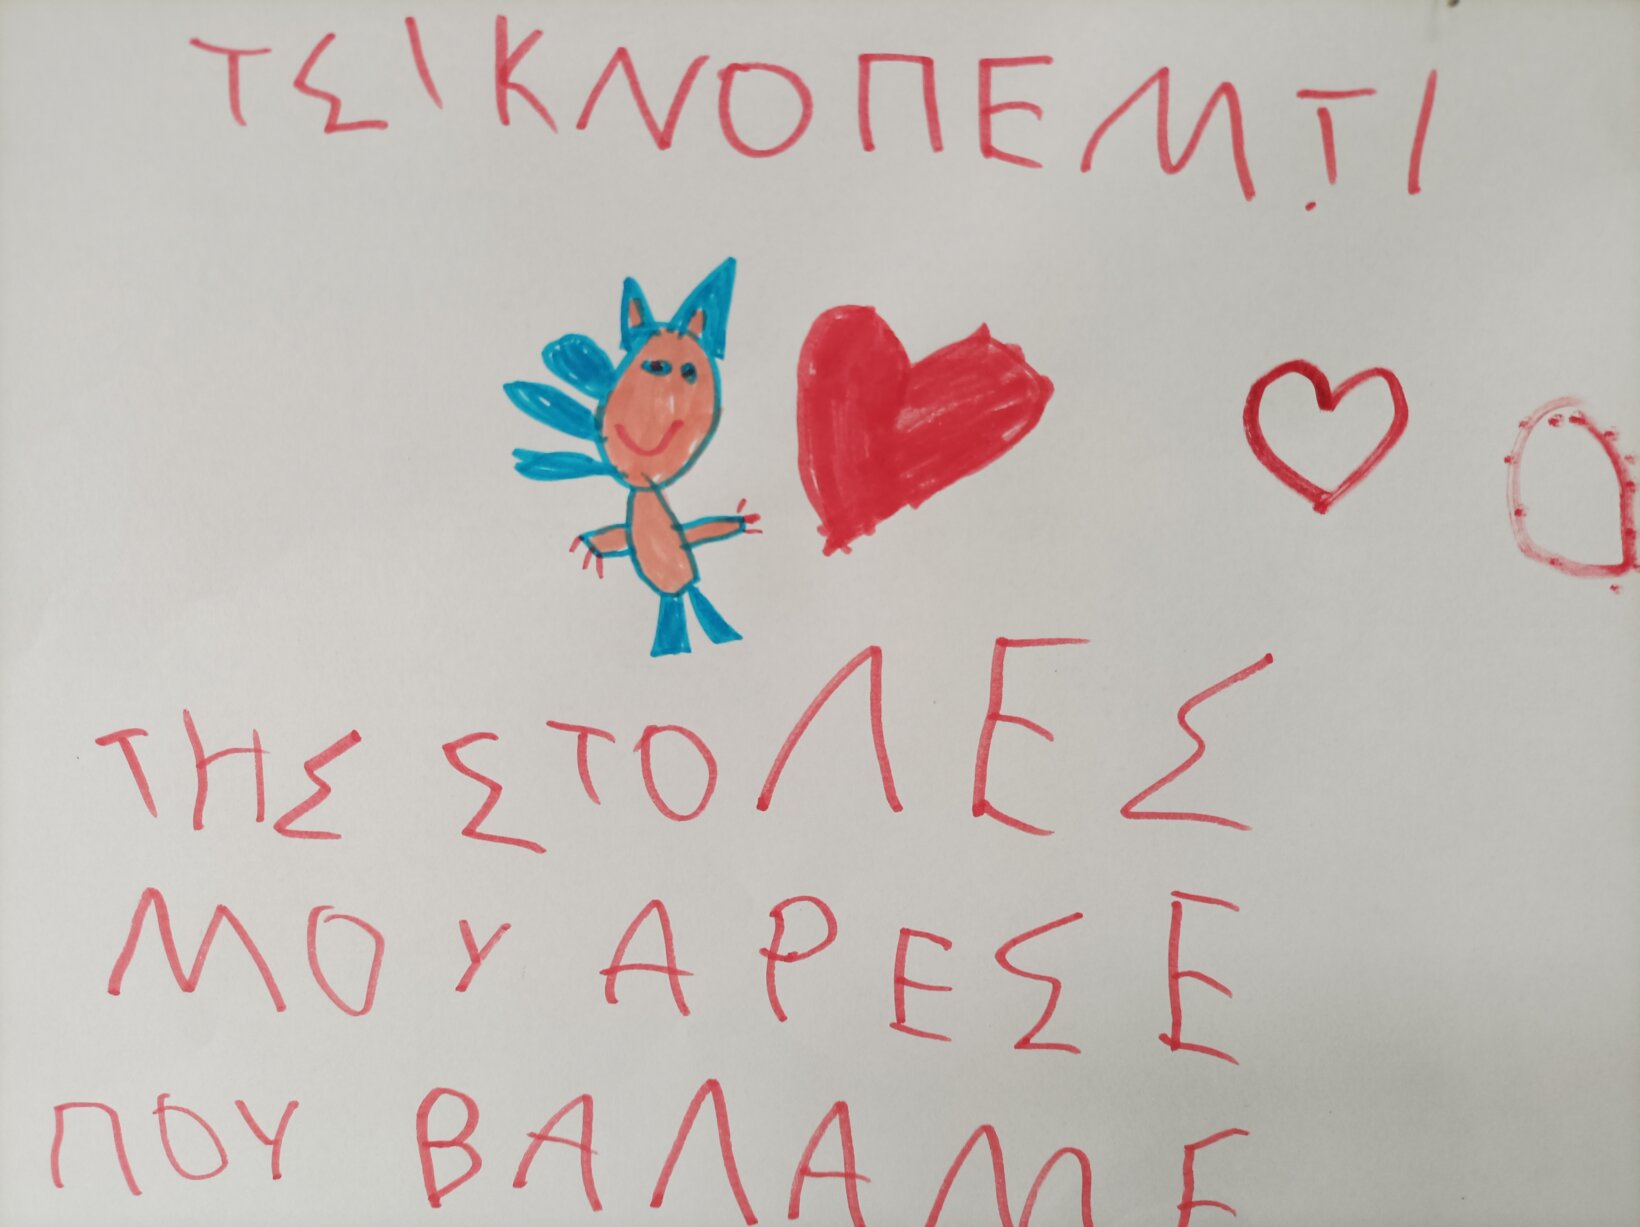 ΤΣΙΚΝΟΠΕΜΤΙ
ΤΗΣ ΣΤΟΛΕΣ
ΜΟΥ ΑΡΕΣΕ
ΠΟΥ ΒΑΛΑΜΕ